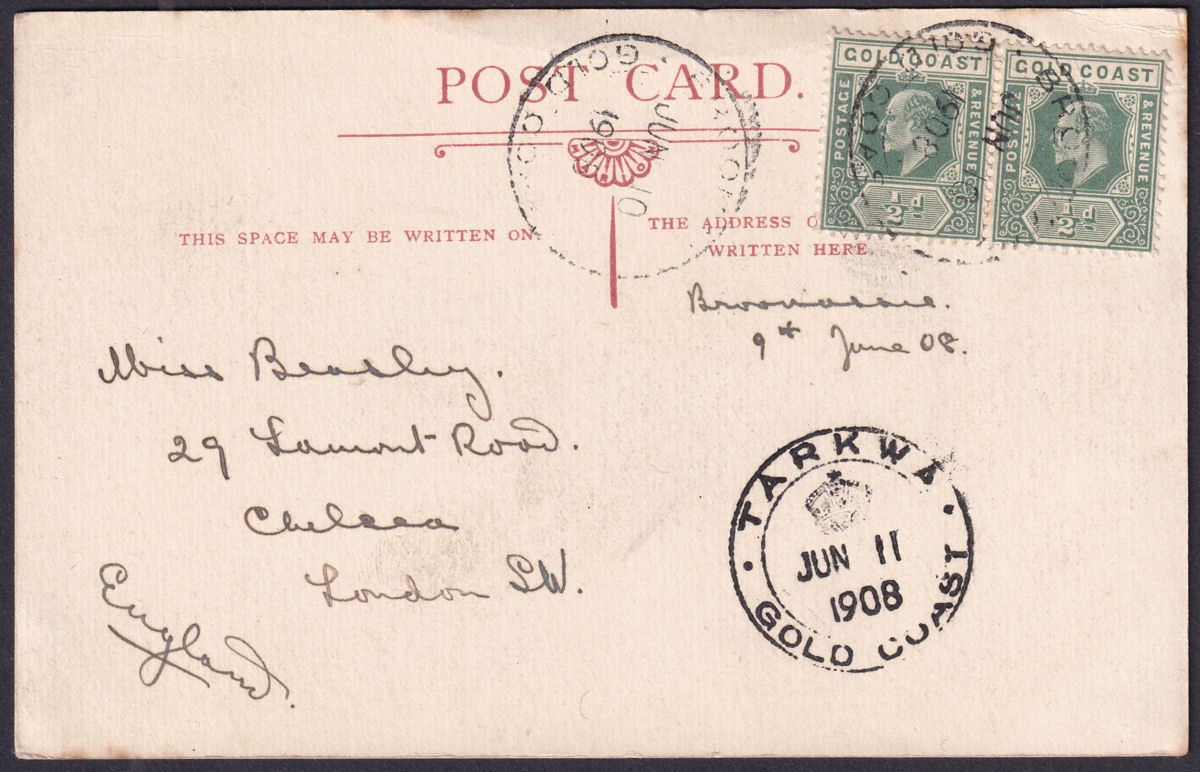 POST CARD.
GOLD COAST
POSTAGE & REVENUE
½d
GOLD COAST
POSTAGE & REVENUE
½d
GOLD COAST
JUN 10
1908
GOLD COAST
JUN
1908
THIS SPACE MAY BE WRITTEN ON.
THE ADDRESS
WRITTEN HERE.
9th June 08.
Miss Beasley.
29 Lamont Road.
Chelsea
London S.W.
England.
TARKWA
JUN 11
1908
GOLD COAST